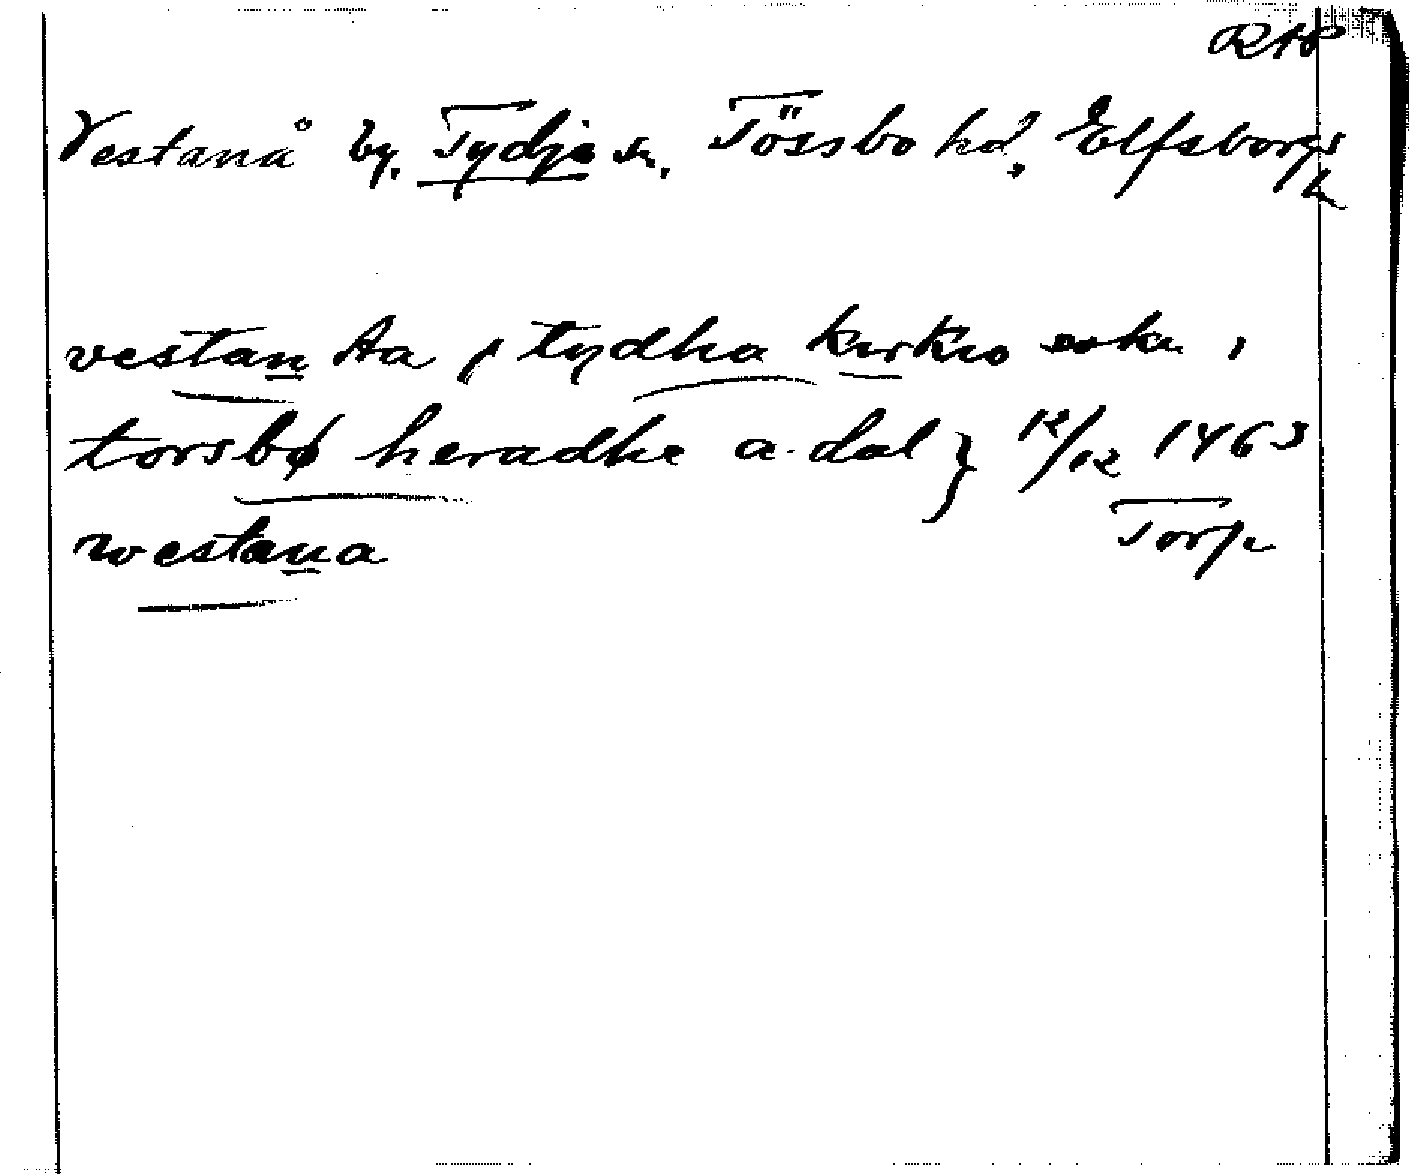 RAP
Vestanå by, Tydje sn, Tössbo hd, Elfsborgs
ln
vestan Aa j tydha kirkio sokn i
torsbø heradhe a dal } 12/12 1463
westana Torp